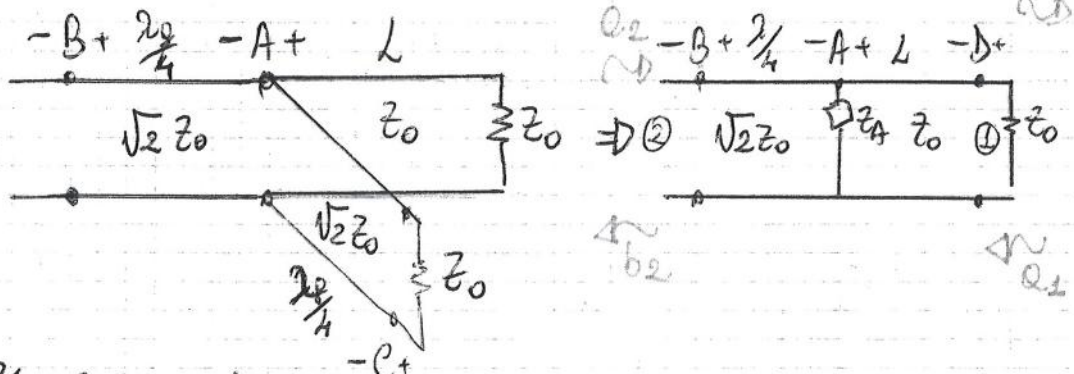 -B+ λg/4 -A+ L
√2 Z0 Z0 Z0
√2 Z0
λg/4 Z0
-C+
a2 -B+ λ/4 -A+ L -D+
⇒ ② √2 Z0 ZA Z0 ① Z0
b2 a1